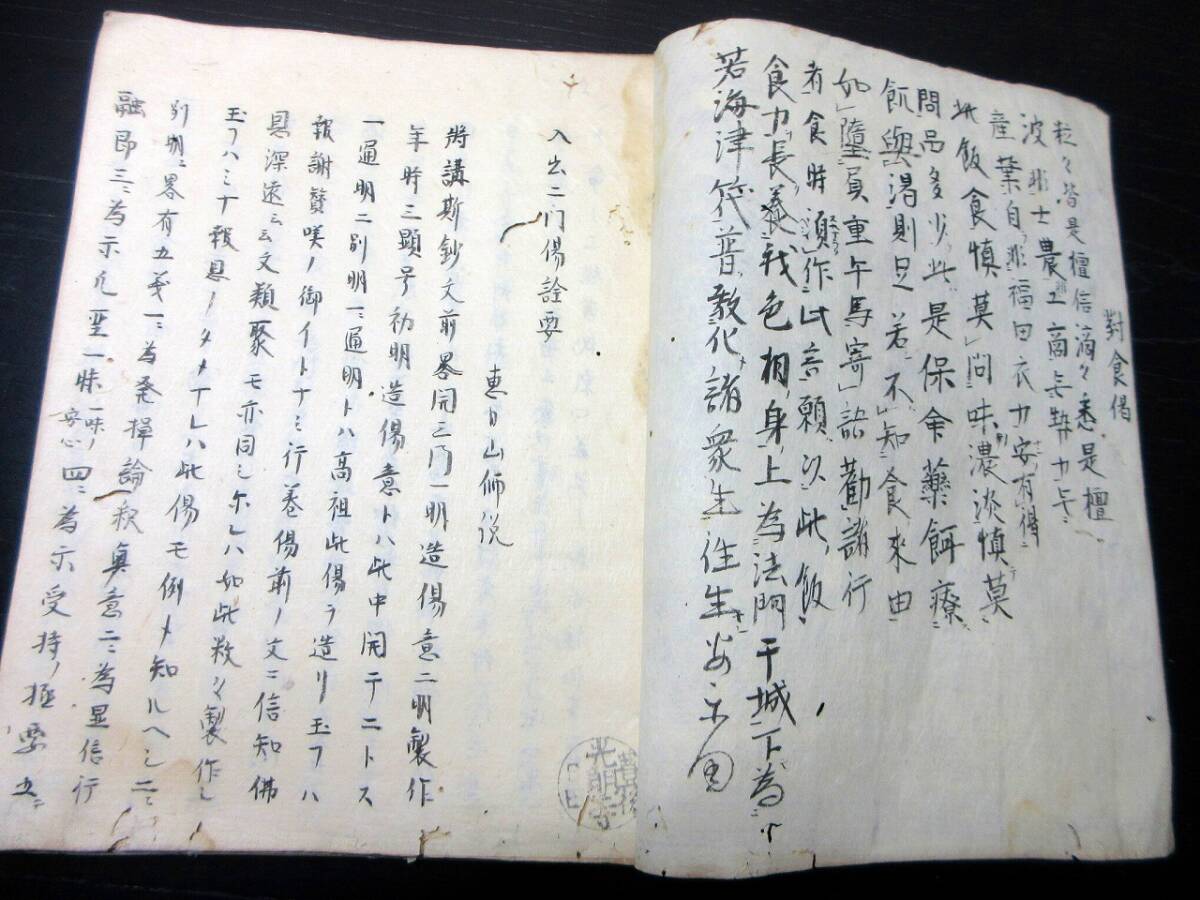 對食偈
粒々皆是檀信滴々悉是檀
波非士農工商無㔟力無
産業自非福田衣力安有得
此飯食慎莫問味濃淡慎莫
問品多少此是保命藥餌療
飢與渇則足若不知食來由
如墮負重牛馬寄語勸諸行
者食時須作此言願以此飯
食力長養我色相身上為法門干城下為
若海津筏普教化諸衆生往生安樂国
入出二门偈詮要
恵月山師説
将講斯鈔文前畧開三门一明造偈意二明製作
年時三顕号初明造偈意トハ此中開テ二トス
一通明二別明一通明トハ高祖此偈ヲ造リ玉フハ
報謝賛嘆ノ御イトナミ行巻偈前ノ文ニ信知佛
恩深遠ニ云文類聚モ亦同シ尓レハ如此救ヲ製作シ
玉フハミナ報恩ノタメナレハ此偈モ例メ知ルヘシ二
別明ニ畧有五義一為発揮論釈奥意二為显信行
融即三為示凡聖一味一味ノ安心四為示受持ノ極要五